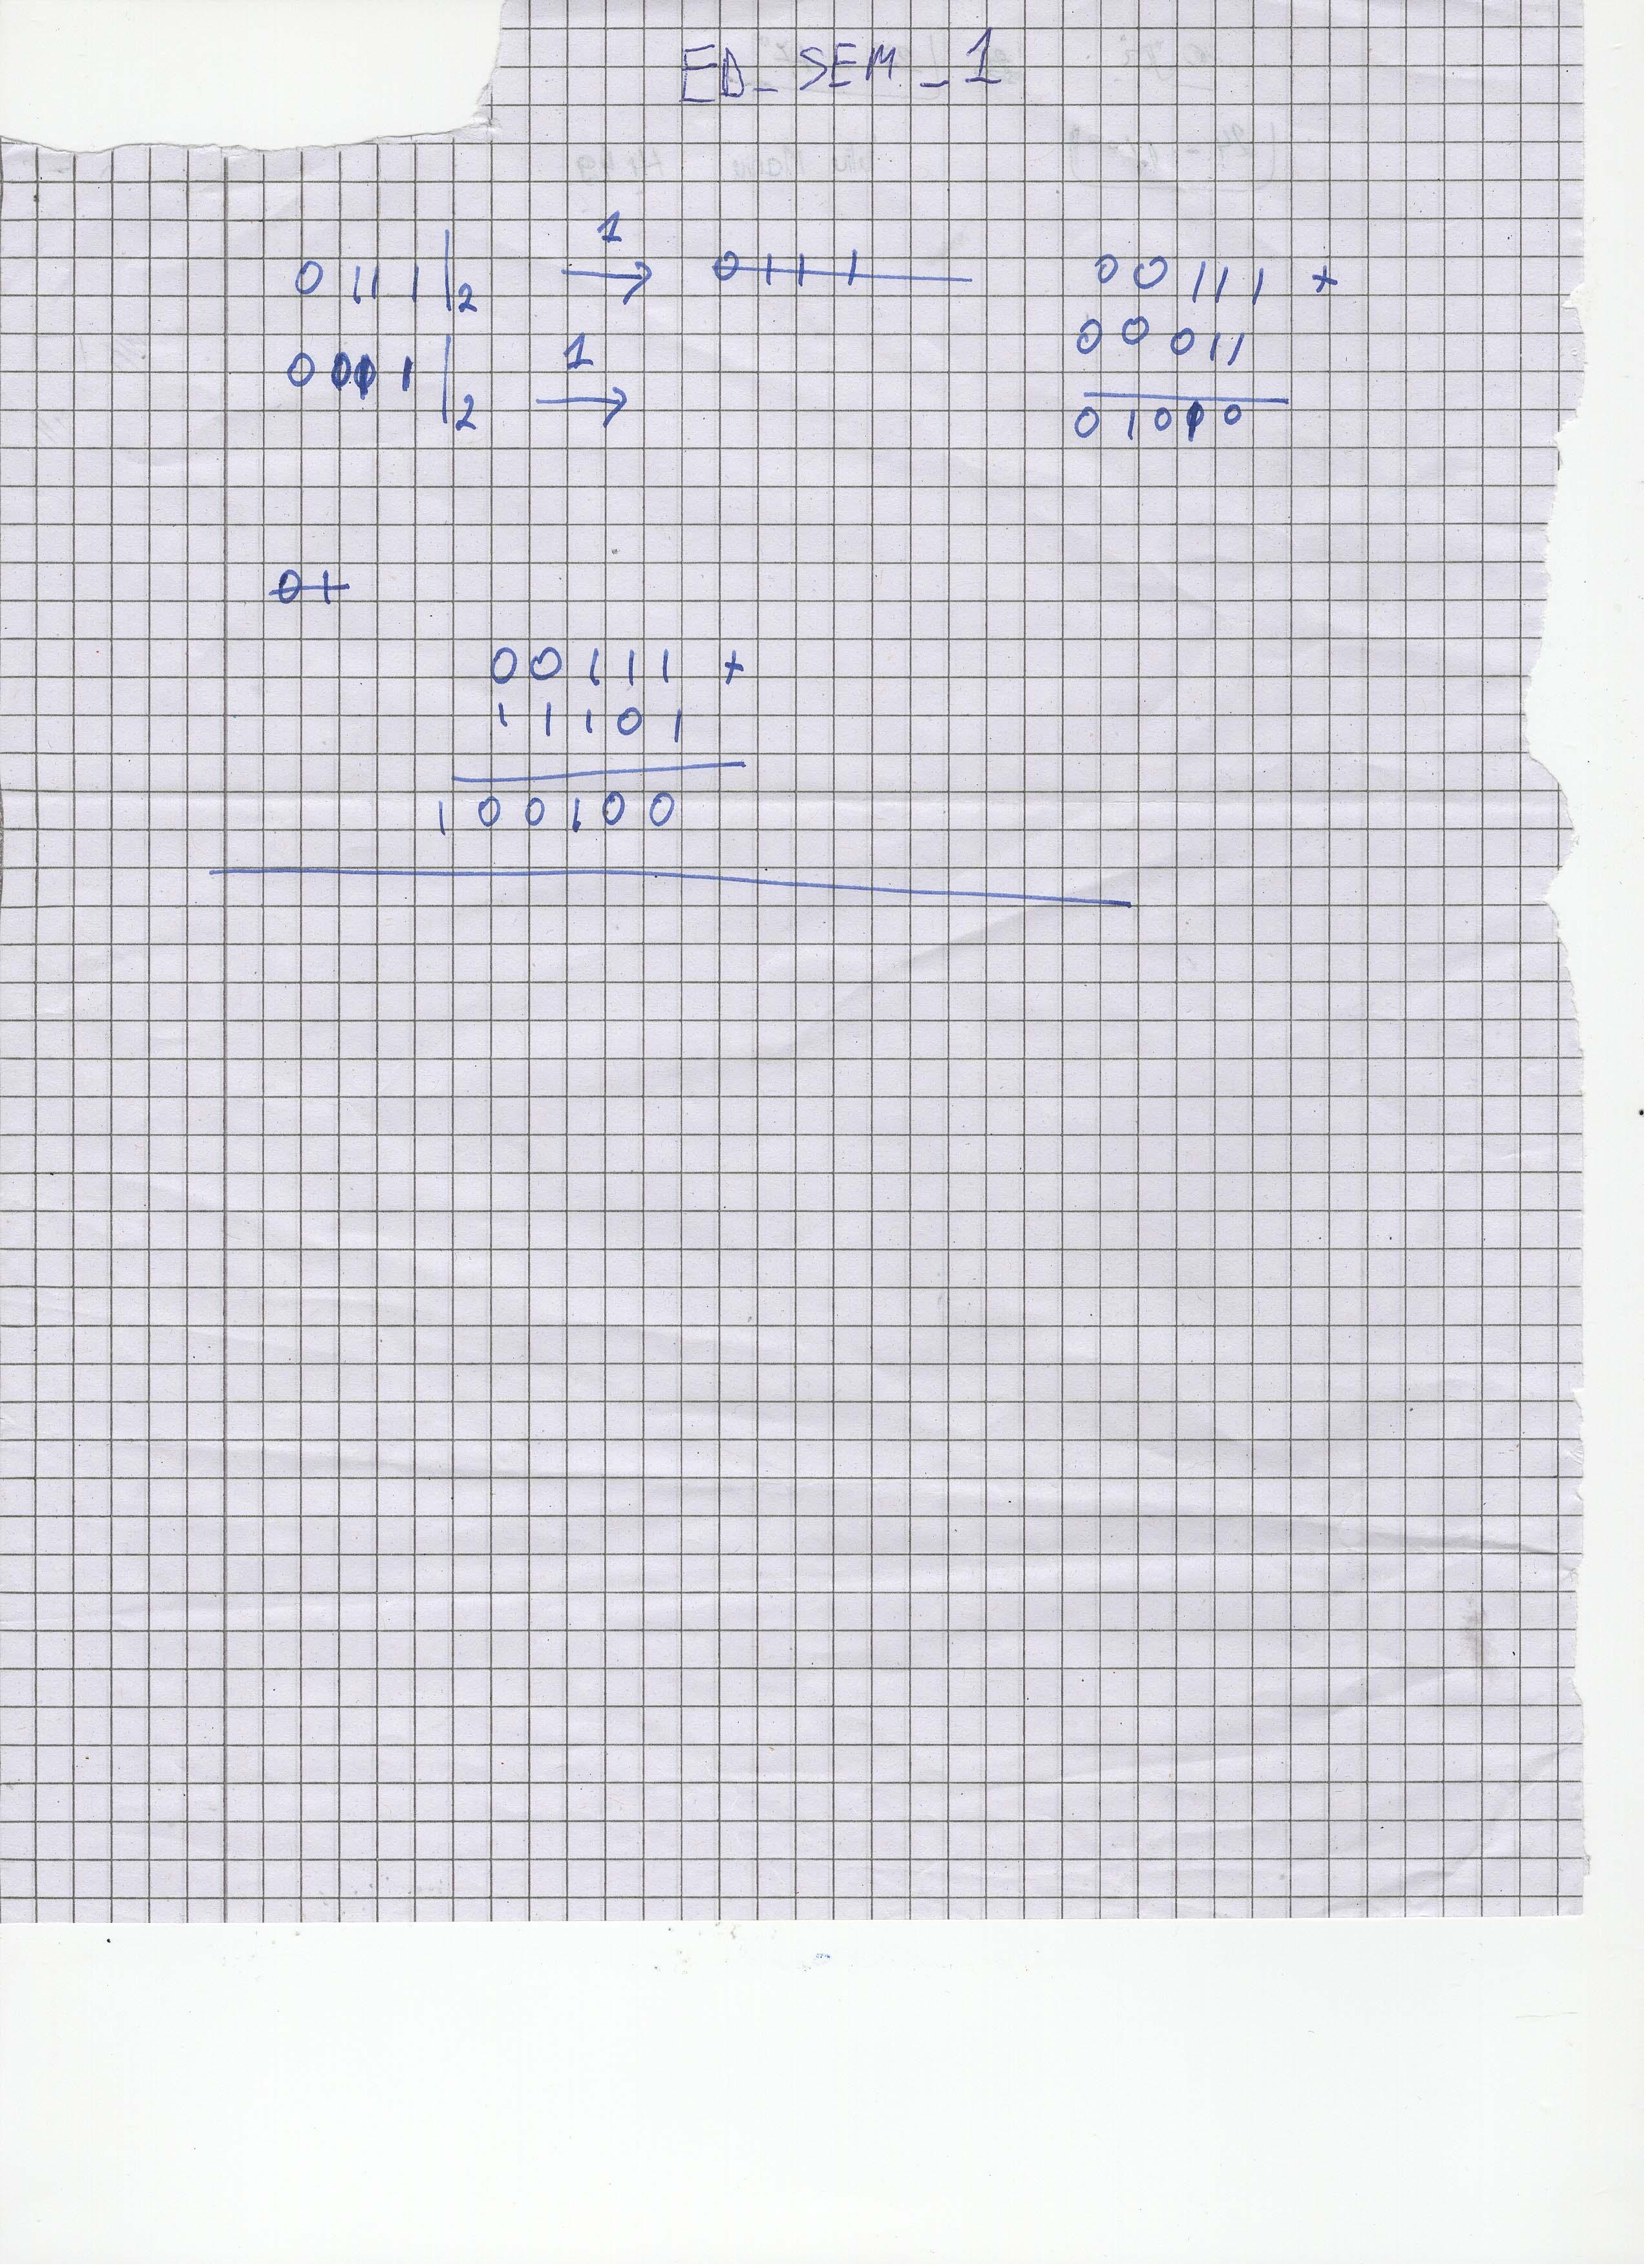 ED_SEM_1
0111|2 →1 0111 00111 +
0001|2 →1 00011
01010
01
00111 +
11101
100100